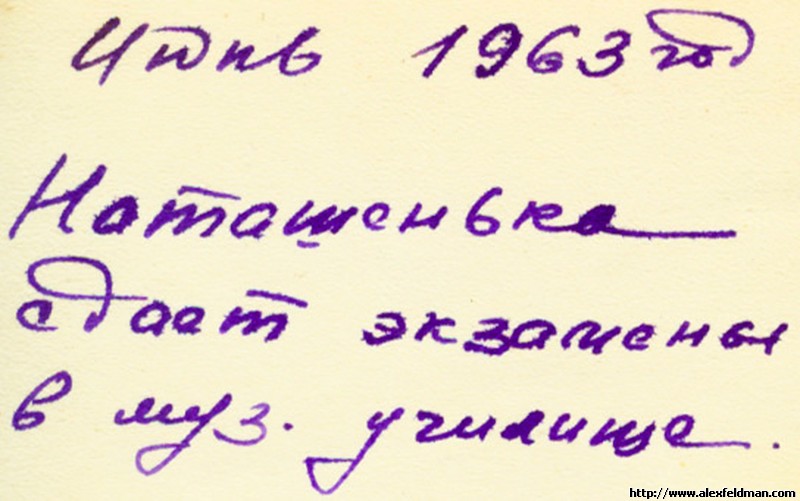 Июнь 1963 год
Наташенька
сдает экзамены
в муз. училище.
http://www.alexfeldman.com